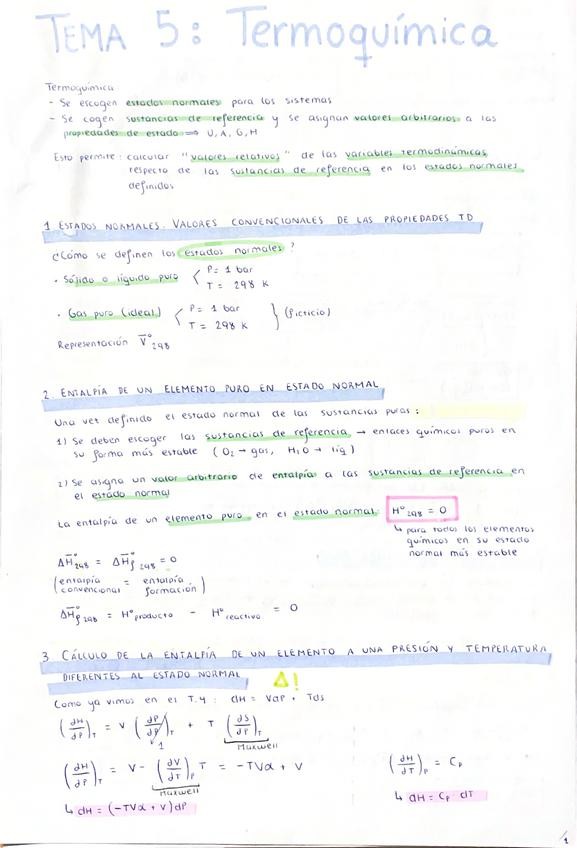 TEMA 5: Termoquímica
Termoquímica
- Se escogen estados normales para los sistemas
- Se cogen sustancias de referencia y se asignan valores arbitrarios a las
propiedades de estado ⟹ U, A, G, H
Esto permite: calcular "valores relativos" de las variables termodinámicas
respecto de las sustancias de referencia en los estados normales
definidos
1 ESTADOS NORMALES. VALORES CONVENCIONALES DE LAS PROPIEDADES TD
¿Cómo se definen los estados normales?
· Sólido o líquido puro < P = 1 bar
T = 298 K
· Gas puro (ideal) < P = 1 bar
T = 298 K } (ficticio)
Representación V̄°298
2. ENTALPÍA DE UN ELEMENTO PURO EN ESTADO NORMAL
Una vez definido el estado normal de las sustancias puras:
1) Se deben escoger las sustancias de referencia → enlaces químicos puros en
su forma más estable (O2 → gas, H2O → líq)
2) Se asigna un valor arbitrario de entalpía a las sustancias de referencia en
el estado normal
La entalpía de un elemento puro en el estado normal H°298 = 0
↳ para todos los elementos
químicos en su estado
normal más estable
ΔH̄°298 = ΔH̄°f 298 = 0
(entalpía convencional = entalpía formación)
ΔH̄°f 298 = H°producto - H°reactivo = 0
3 CÁLCULO DE LA ENTALPÍA DE UN ELEMENTO A UNA PRESIÓN Y TEMPERATURA
DIFERENTES AL ESTADO NORMAL ⚠!
Como ya vimos en el T.4: dH = VdP + Tds
(∂H/∂P)T = V (∂P/∂P)T + T (∂S/∂P)T
1 Maxwell
(∂H/∂P)T = V - (∂V/∂T)P T = -TVα + V (∂H/∂T)P = CP
Maxwell
↳ dH = (-TVα + V)dP ↳ dH = CP dT
1